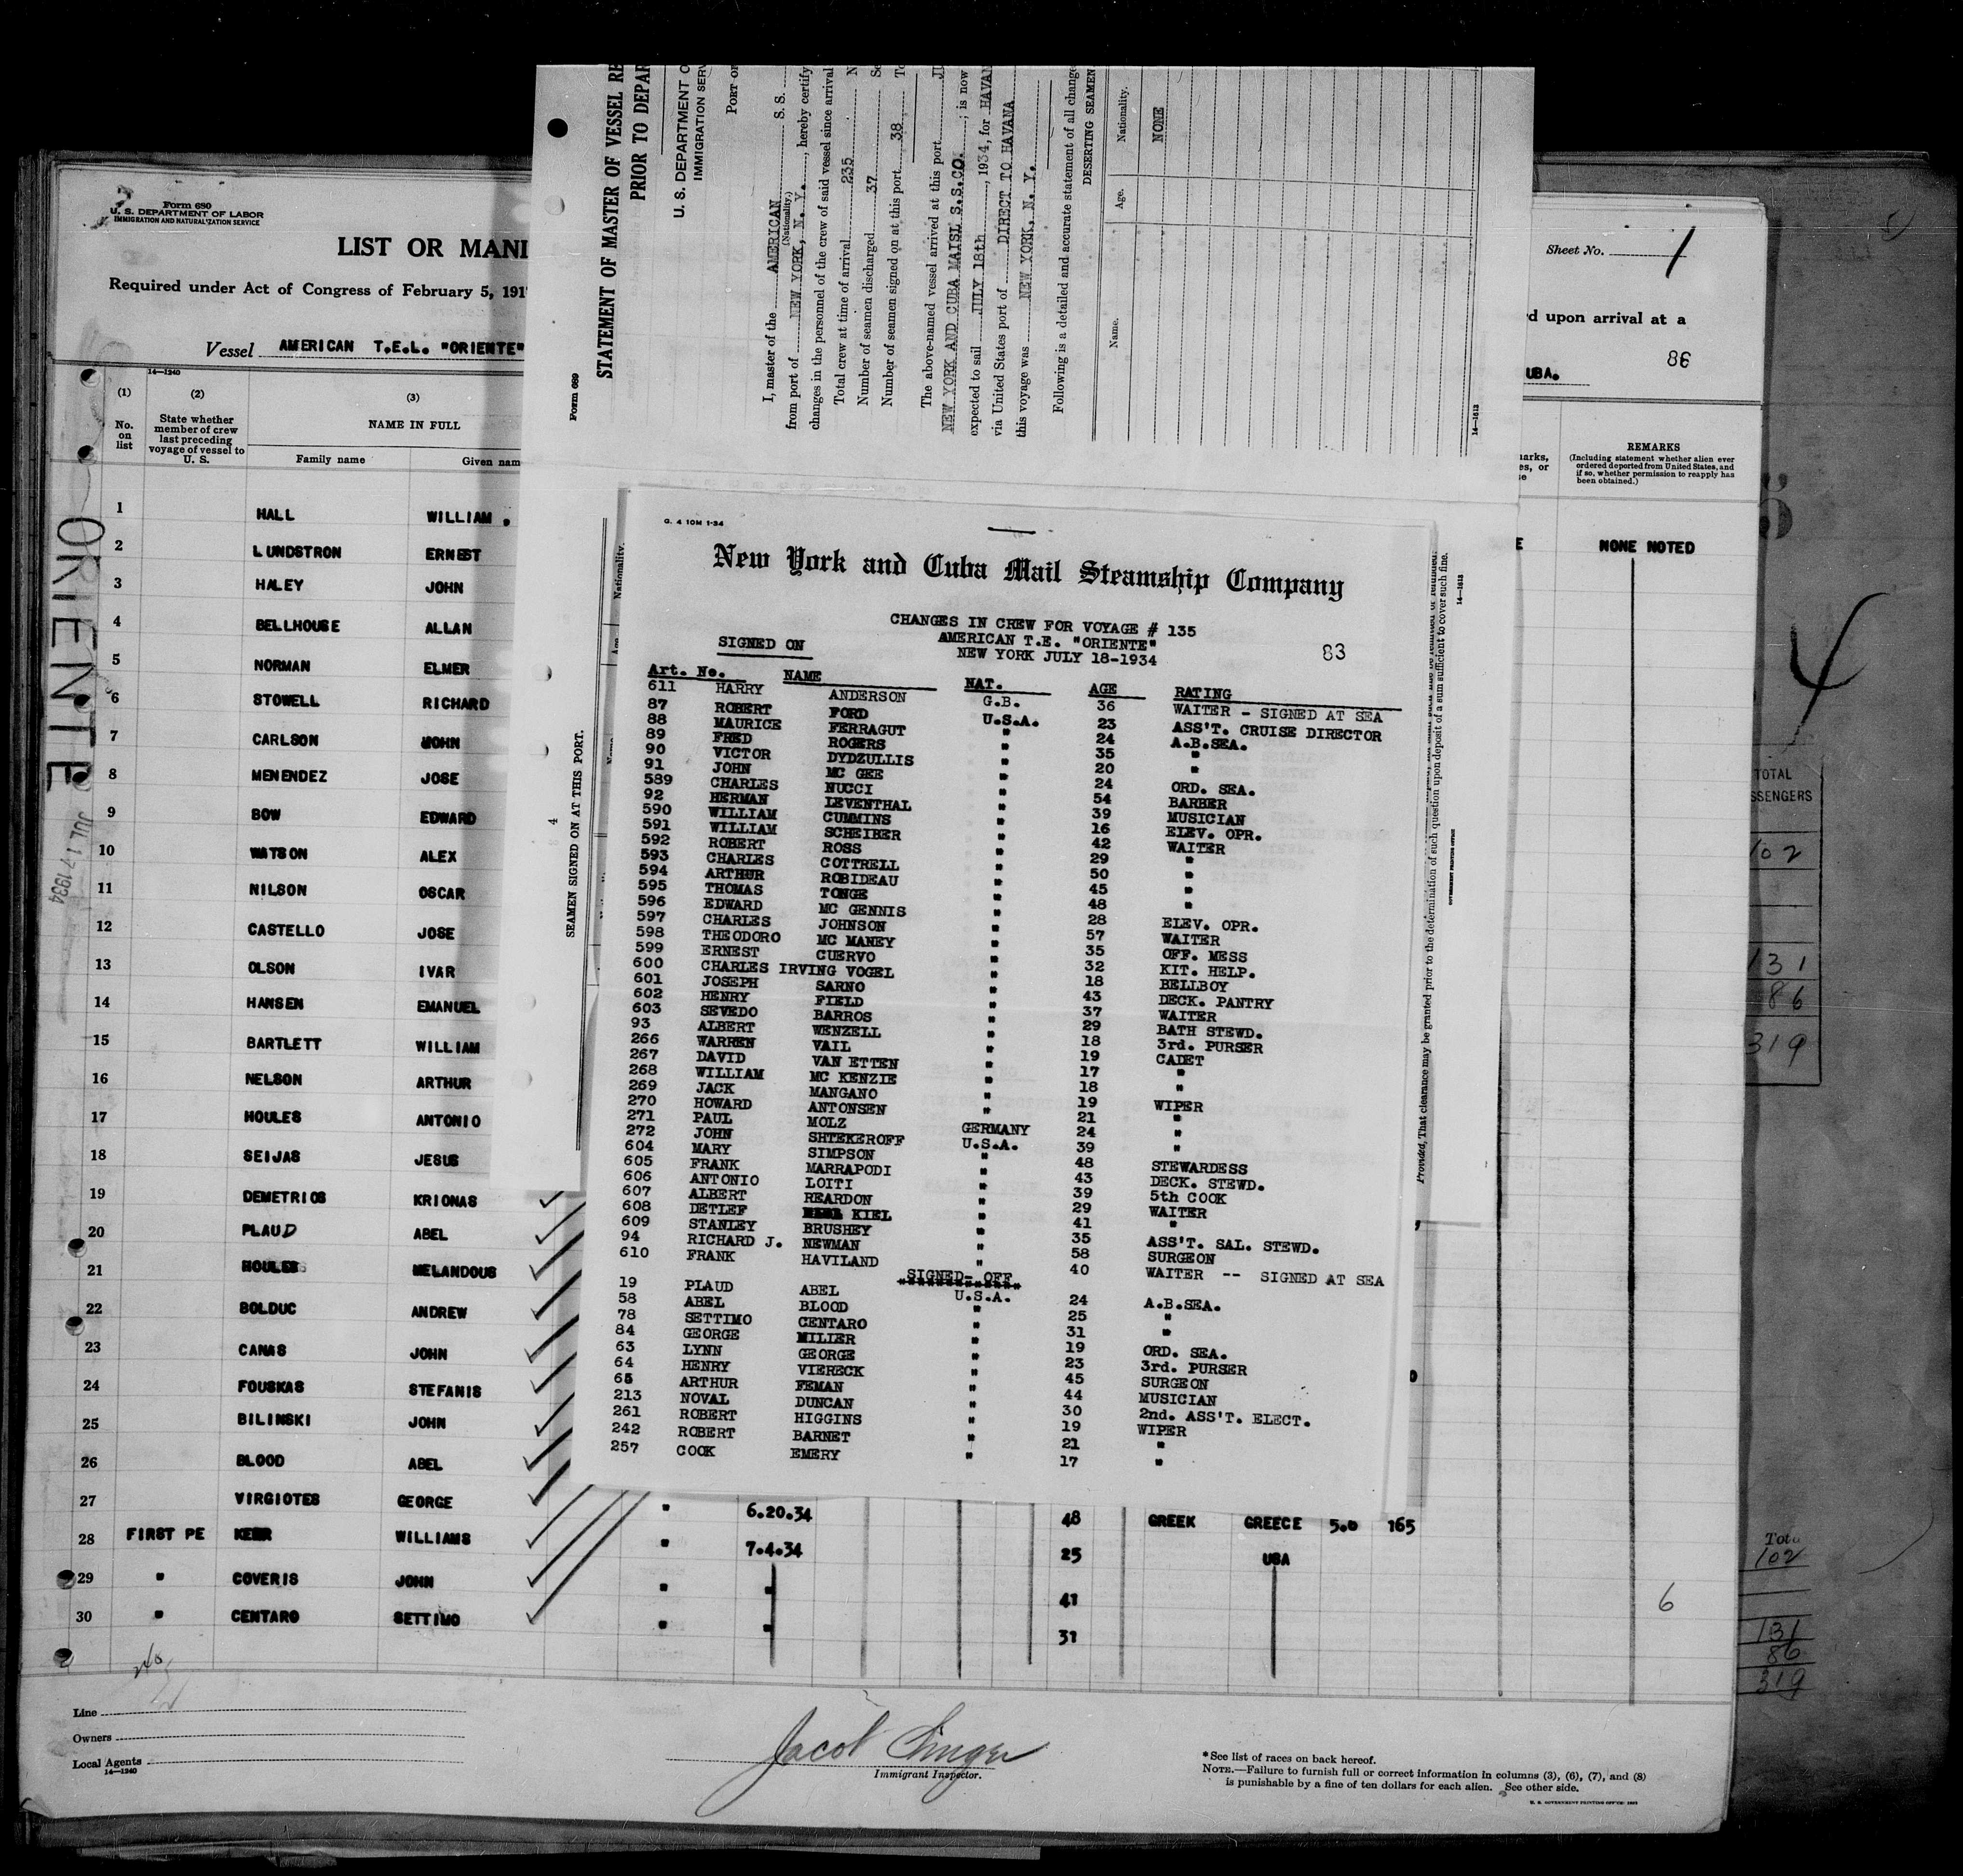 Form 680
U. S. DEPARTMENT OF LABOR
IMMIGRATION AND NATURALIZATION SERVICE
LIST OR MANI
Required under Act of Congress of February 5, 191
Vessel AMERICAN T.E.L. "ORIENTE"
14—1240
(1) (2) (3)
No. on list
State whether member of crew last preceding voyage of vessel to U. S.
NAME IN FULL
Family name Given nam
ORIENTE
JUL 17 1934
1 HALL WILLIAM .
2 LUNDSTRON ERNEST
3 HALEY JOHN
4 BELLHOUSE ALLAN
5 NORMAN ELMER
6 STOWELL RICHARD
7 CARLSON JOHN
8 MENENDEZ JOSE
9 BOW EDWARD
10 WATSON ALEX
11 NILSON OSCAR
12 CASTELLO JOSE
13 OLSON IVAR
14 HANSEN EMANUEL
15 BARTLETT WILLIAM
16 NELSON ARTHUR
17 HOULES ANTONIO
18 SEIJAS JESUS
19 DEMETRIOS KRIONAS
20 PLAUD ABEL
21 HOULES MELANDOUS
22 BOLDUC ANDREW
23 CANAS JOHN
24 FOUSKAS STEFANIS
25 BILINSKI JOHN
26 BLOOD ABEL
27 VIRGIOTES GEORGE " 6.20.34 48 GREEK GREECE 5.0 165
28 FIRST PE KERR WILLIAMS " 7.4.34 25 USA
29 " COVERIS JOHN " " 41
30 " CENTARO SETTIMO " " 31
6
Line
Owners
Local Agents
14—1240
Jacob Singer
Immigrant Inspector.
*See list of races on back hereof.
NOTE.—Failure to furnish full or correct information in columns (3), (6), (7), and (8)
is punishable by a fine of ten dollars for each alien. See other side.
Form 689
STATEMENT OF MASTER OF VESSEL RE
PRIOR TO DEPAR
U. S. DEPARTMENT O
IMMIGRATION SERV
PORT OF
I, master of the AMERICAN S. S.
(Nationality.)
from port of NEW YORK, N. Y., hereby certify
changes in the personnel of the crew of said vessel since arrival
Total crew at time of arrival 235 N
Number of seamen discharged 37 Se
Number of seamen signed on at this port 38 To
The above-named vessel arrived at this port JU
NEW YORK AND CUBA MAISL S.S.CO.; is now
expected to sail JULY 18th, 1934, for HAVAN
via United States port of DIRECT TO HAVANA
this voyage was NEW YORK, N. Y.
Following is a detailed and accurate statement of all change
DESERTING SEAMEN
Name. Age. Nationality.
NONE
14—1613
SEAMEN SIGNED ON AT THIS PORT.
4
Nationality.
G. 4 10M 1-34
New York and Cuba Mail Steamship Company
CHANGES IN CREW FOR VOYAGE # 135
AMERICAN T.E. "ORIENTE"
NEW YORK JULY 18-1934
83
SIGNED ON
Art. No. NAME NAT. AGE RATING
611 HARRY ANDERSON G.B. 36 WAITER - SIGNED AT SEA
87 ROBERT FORD U.S.A. 23 ASS'T. CRUISE DIRECTOR
88 MAURICE FERRAGUT " 24 A.B.SEA.
89 FRED ROGERS " 35 "
90 VICTOR DYDZULLIS " 20 "
91 JOHN MC GEE " 24 ORD. SEA.
589 CHARLES NUCCI " 54 BARBER
92 HERMAN LEVENTHAL " 39 MUSICIAN
590 WILLIAM CUMMINS " 16 ELEV. OPR.
591 WILLIAM SCHEIBER " 42 WAITER
592 ROBERT ROSS " 29 "
593 CHARLES COTTRELL " 50 "
594 ARTHUR ROBIDEAU " 45 "
595 THOMAS TONGE " 48 "
596 EDWARD MC GENNIS " 28 ELEV. OPR.
597 CHARLES JOHNSON " 57 WAITER
598 THEODORO MC MANEY " 35 OFF. MESS
599 ERNEST CUERVO " 32 KIT. HELP.
600 CHARLES IRVING VOGEL " 18 BELLBOY
601 JOSEPH SARNO " 43 DECK. PANTRY
602 HENRY FIELD " 37 WAITER
603 SEVEDO BARROS " 29 BATH STEWD.
93 ALBERT WENZELL " 18 3rd. PURSER
266 WARREN VAIL " 19 CADET
267 DAVID VAN ETTEN " 17 "
268 WILLIAM MC KENZIE " 18 "
269 JACK MANGANO " 19 WIPER
270 HOWARD ANTONSEN " 21 "
271 PAUL MOLZ GERMANY 24 "
272 JOHN SHTEKEROFF U.S.A. 39 "
604 MARY SIMPSON " 48 STEWARDESS
605 FRANK MARRAPODI " 43 DECK. STEWD.
606 ANTONIO LOITI " 39 5th COOK
607 ALBERT REARDON " 29 WAITER
608 DETLEF KIEL " 41 "
609 STANLEY BRUSHEY " 35 ASS'T. SAL. STEWD.
94 RICHARD J. NEWMAN " 58 SURGEON
610 FRANK HAVILAND " 40 WAITER -- SIGNED AT SEA
SIGNED- OFF
19 PLAUD ABEL U.S.A. 24 A.B.SEA.
58 ABEL BLOOD " 25 "
78 SETTIMO CENTARO " 31 "
84 GEORGE MILIER " 19 ORD. SEA.
63 LYNN GEORGE " 23 3rd. PURSER
64 HENRY VIERECK " 45 SURGEON
65 ARTHUR FEMAN " 44 MUSICIAN
213 NOVAL DUNCAN " 30 2nd. ASS'T. ELECT.
261 ROBERT HIGGINS " 19 WIPER
242 ROBERT BARNET " 21 "
257 COOK EMERY " 17 "
Provided, That clearance may be granted prior to the determination of such question upon deposit of a sum sufficient to cover such fine.
14—1613
GOVERNMENT PRINTING OFFICE
Sheet No. 1
d upon arrival at a
86
UBA.
REMARKS
(Including statement whether alien ever ordered deported from United States, and if so, whether permission to reapply has been obtained.)
NONE NOTED
4
TOTAL
SSENGERS
102
131
86
319
102
131
86
319